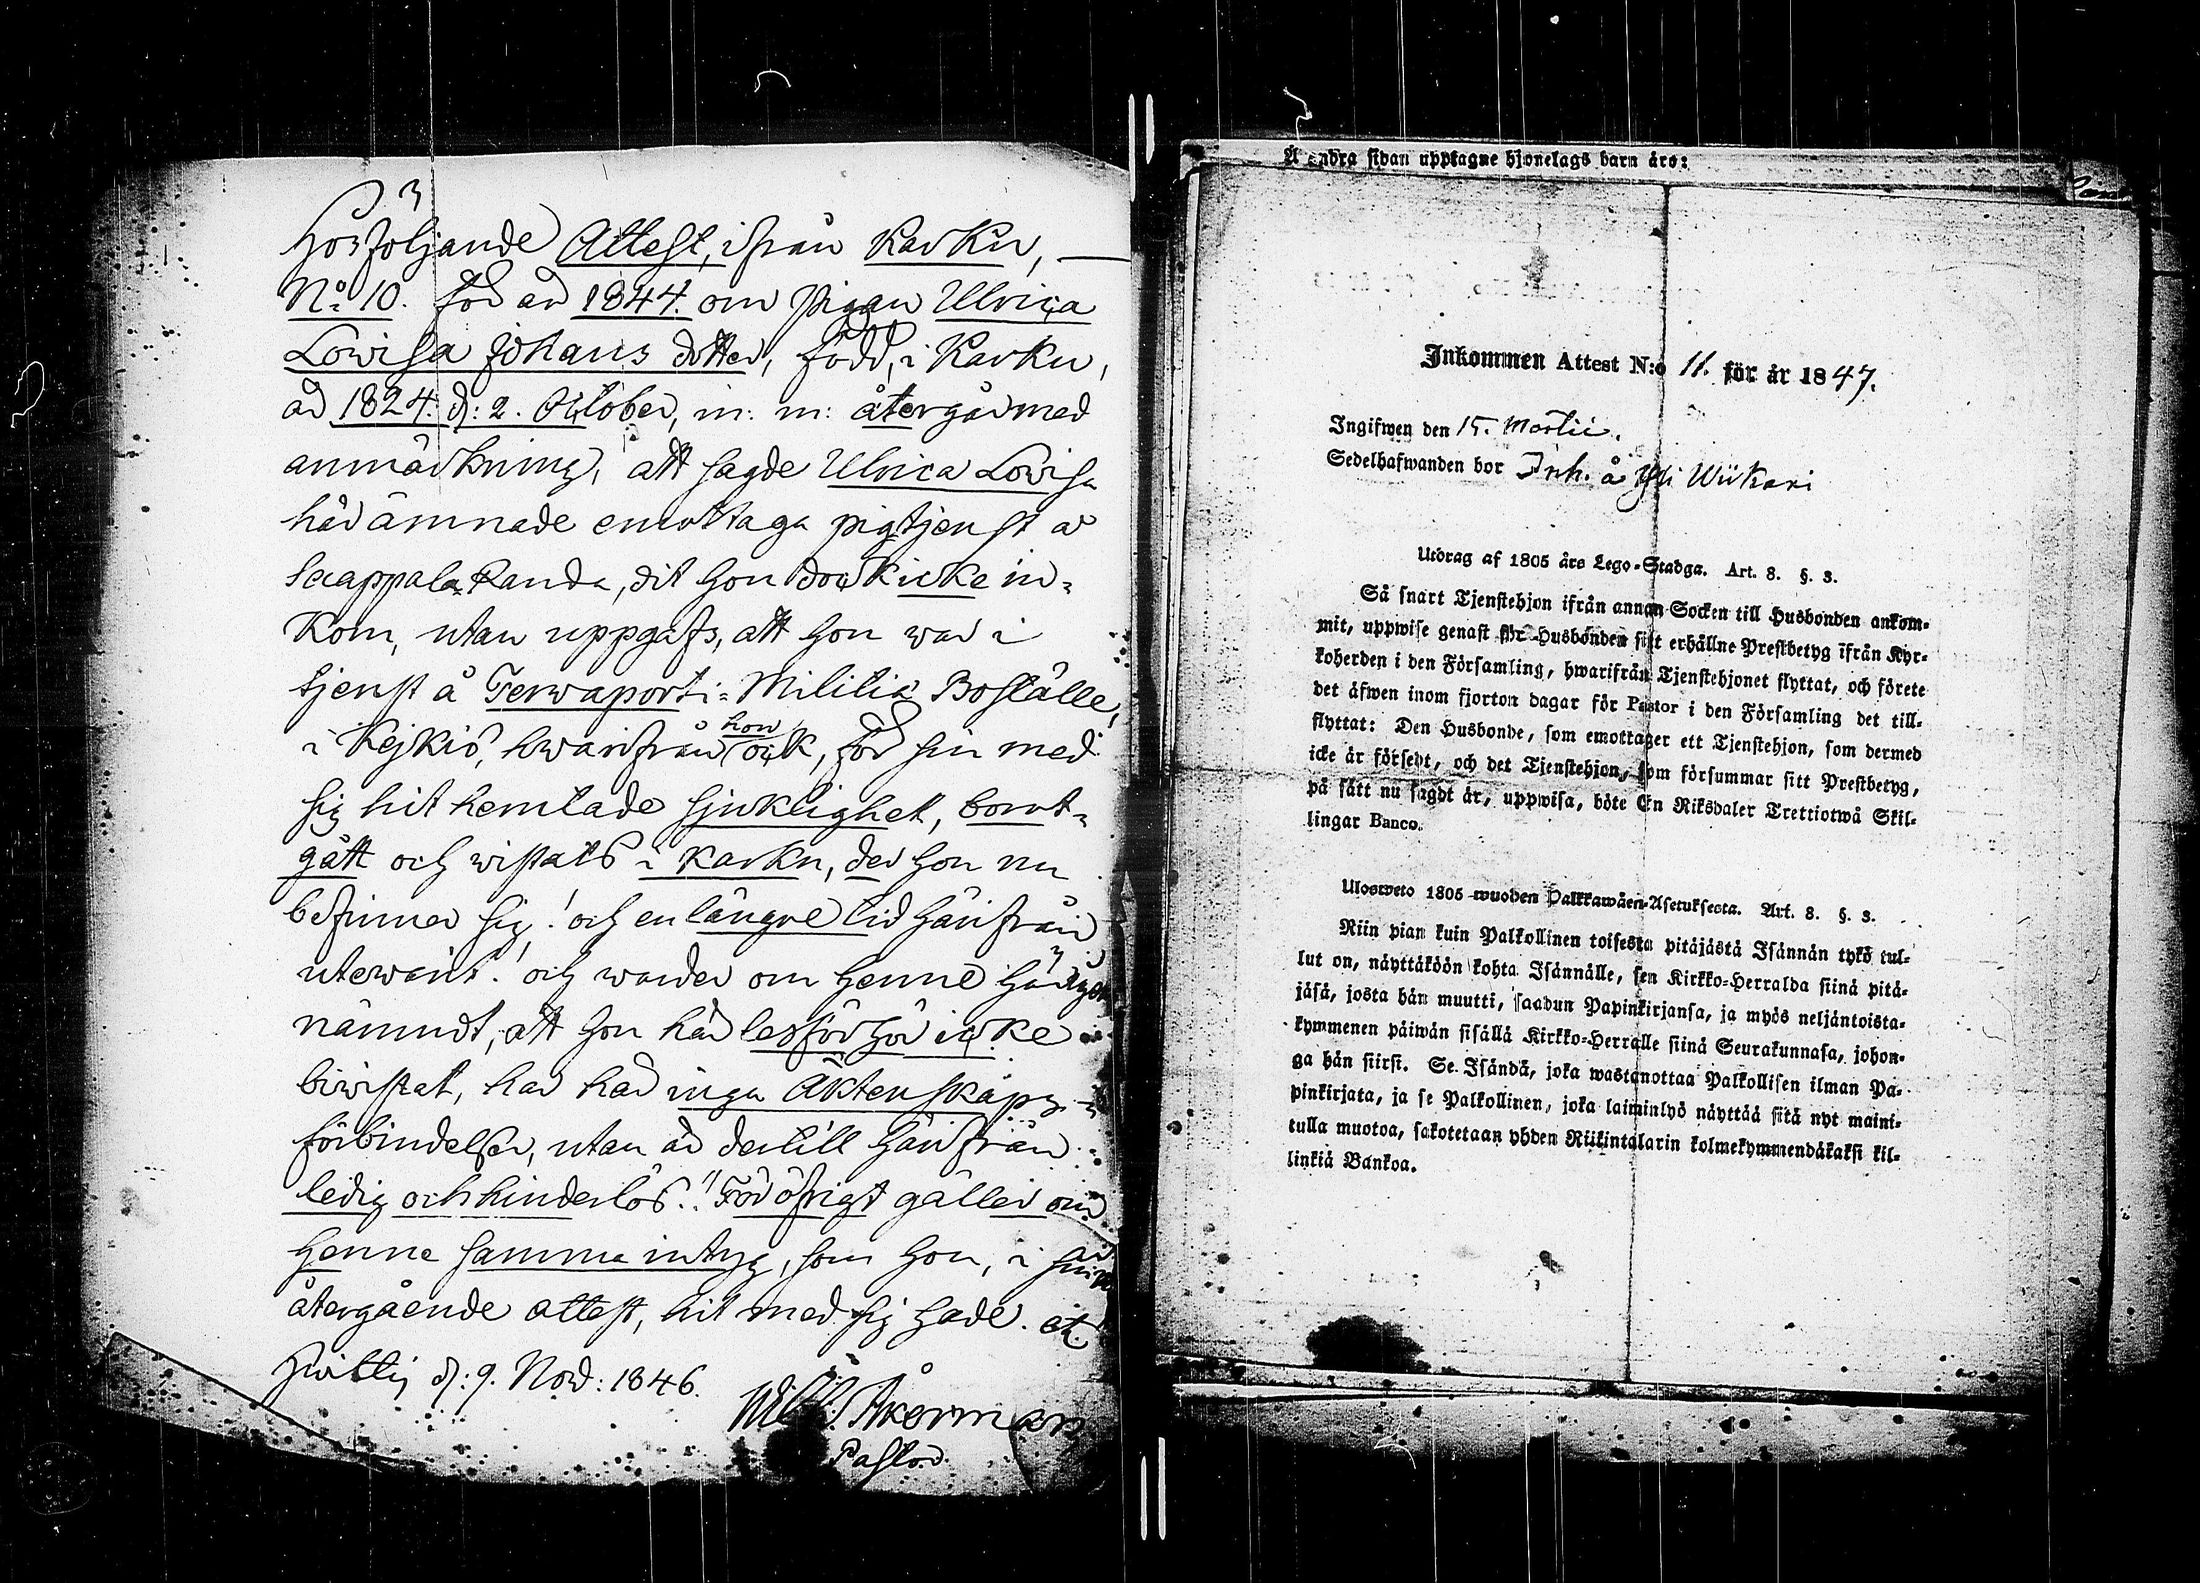 Hosföljande Attest, ifrån Karku,
No 10. för år 1844. om pigan Ulrica
Lowisa Johans dotter, född, i Karku,
år 1824. d: 2. October, m: m: återgår med
anmärkning, att sagde Ulrica Lovisa
här ämnade emottaga pigtjenst å
Saappala Randa, dit hon dock icke in-
kom, utan uppgafs, att hon war i
tjenst å Terwaporti-Militiæ Boställe,
i Kejkiö, hwarifrån hon ock, för sin med
sig hit hemtade sjuklighet, bort-
gått och wistats i Karku, der hon nu
befinner sig! och en längre tid härifrån
utewarit! och warder om henne härigen
nämndt, att hon här läsförhör icke
biwistat, har här inga Äktenskaps-
förbindelser, utan är dertill härifrån
ledig och hinderlös." För öfrigt gäller om
henne samma intyg, som hon, i sin
återgående attest, hit med sig hade.
Hwittis d: 9. Nov: 1846.
Wilh. Åkerman
Pastor.
Å andra sidan upptagne hjonelags barn äro:
Inkommen Attest N:o 11. för år 1847.
Ingifwen den 15. Martii.
Sedelhafwanden bor Inh. å Yli Wiikari
Utdrag af 1805 års Lego-Stadga. Art. 8. §. 3.
Så snart Tjenstehjon ifrån annan Socken till Husbonden ankom-
mit, uppwise genast för Husbonden sitt erhållne Prestbetyg ifrån Kyr-
koherden i den Församling, hwarifrån Tjenstehjonet flyttat, och förete
det äfwen inom fjorton dagar för Pastor i den Församling det till-
flyttat: Den Husbonde, som emottager ett Tjenstehjon, som dermed
icke är försedt, och det Tjenstehjon, som försummar sitt Prestbetyg,
på sätt nu sagdt är, uppwisa, böte En Riksdaler Trettiotwå Skil-
lingar Banco.
Ulosweto 1805 wuoden Palkkawäen-Asetuksesta. Art. 8. §. 3.
Niin pian kuin Palkollinen toisesta pitäjästä Isännän tykö tul-
lut on, näyttäköön kohta Isännälle, sen Kirkko-Herralda siinä pitä-
jäsä, josta hän muutti, saadun Papinkirjansa, ja myös neljäntoista-
kymmenen päiwän sisällä Kirkko-Herralle siinä Seurakunnasa, johon-
ga hän siirsi. Se Isändä, joka wastanottaa Palkollisen ilman Pa-
pinkirjata, ja se Palkollinen, joka laiminlyö näyttää sitä nyt maini-
tulla muotoa, sakotetaan yhden Riikintalarin kolmekymmendäkaksi kil-
linkiä Bankoa.